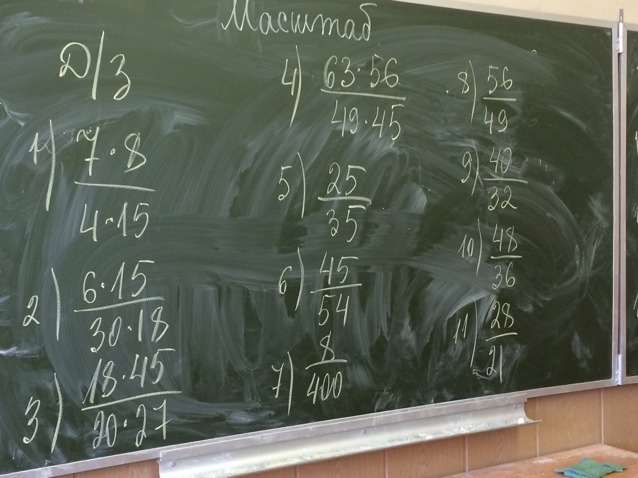 Масштаб
Д/З
1) 7·8
4·15
2) 6·15
30·18
3) 18·45
20·27
4) 63·56
49·45
5) 25
35
6) 45
54
7) 8
400
8) 56
49
9) 40
32
10) 48
36
11) 28
21